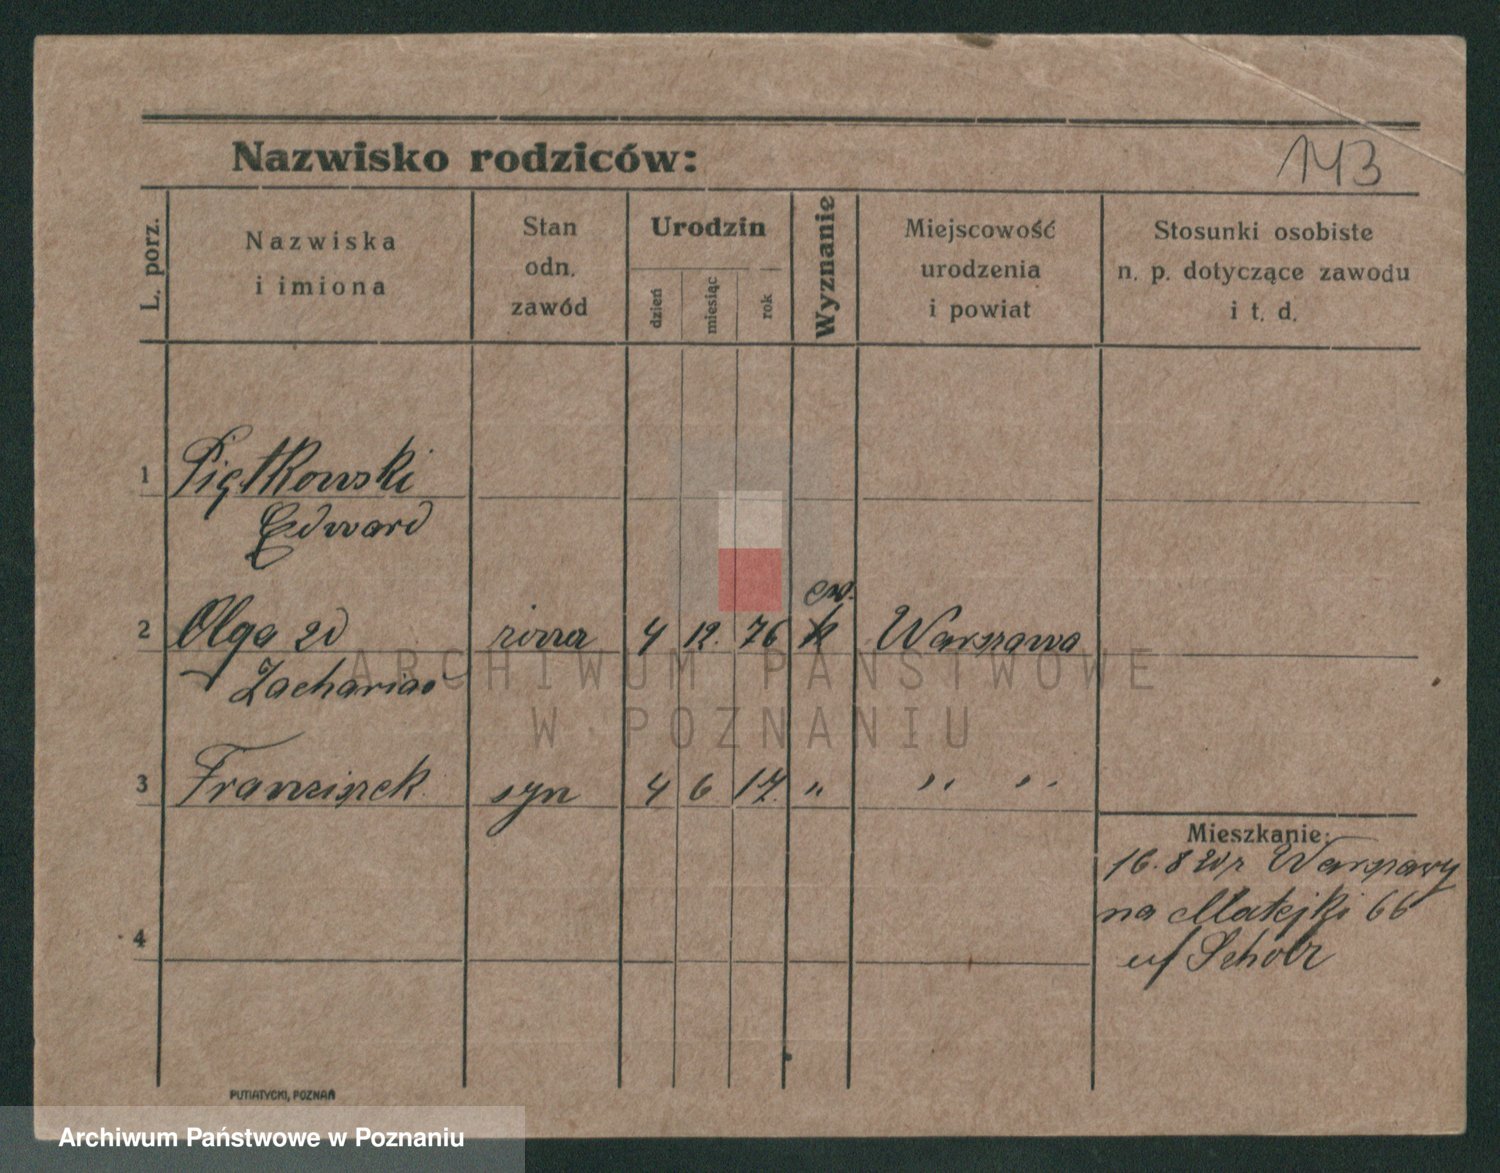 Nazwisko rodziców:
143
L. porz.
Nazwiska
i imiona
Stan
odn.
zawód
Urodzin
dzień
miesiąc
rok
Wyznanie
Miejscowość
urodzenia
i powiat
Stosunki osobiste
n. p. dotyczące zawodu
i t. d.
1 Piątkowski
Edward
ew.
2 Olga zd żona 4 12. 76 k Warszawa
Zacharias
3 Franciszek syn 4 6 17. " " "
Mieszkanie:
16.8 20 z Warszawy
na Matejki 66
u/ Scholz
4
PUTIATYCKI, POZNAŃ
ARCHIWUM PAŃSTWOWE
W POZNANIU
Archiwum Państwowe w Poznaniu